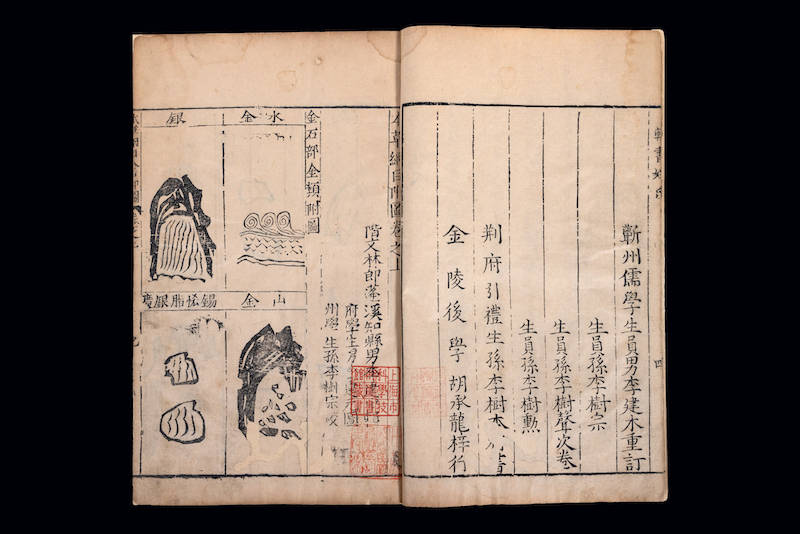 輯書姓氏
四
蘄州儒學生員男李建木重訂
生員孫李樹宗
生員孫李樹聲次卷
生員孫李樹勲
荆府引禮生孫李樹本書
金陵後學胡承龍梓行
草綱目附圖卷之上
階文林郎蓬溪知縣男李建
府學生男李建元圖
州學生孫李樹宗校
金石部金類附圖
水金
山金
銀
錫恡脂銀礦